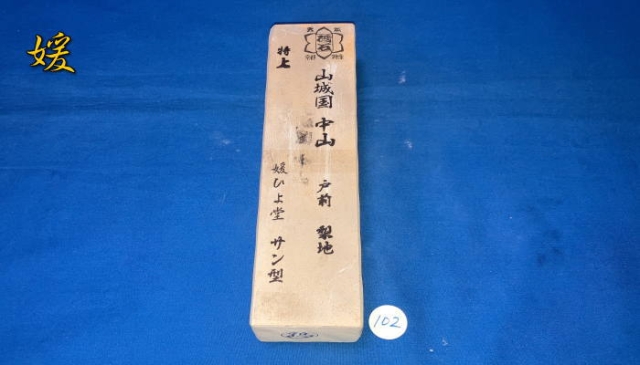 媛
特上
山城国 中山
戸前 梨地
媛ひよ堂 サン型
102